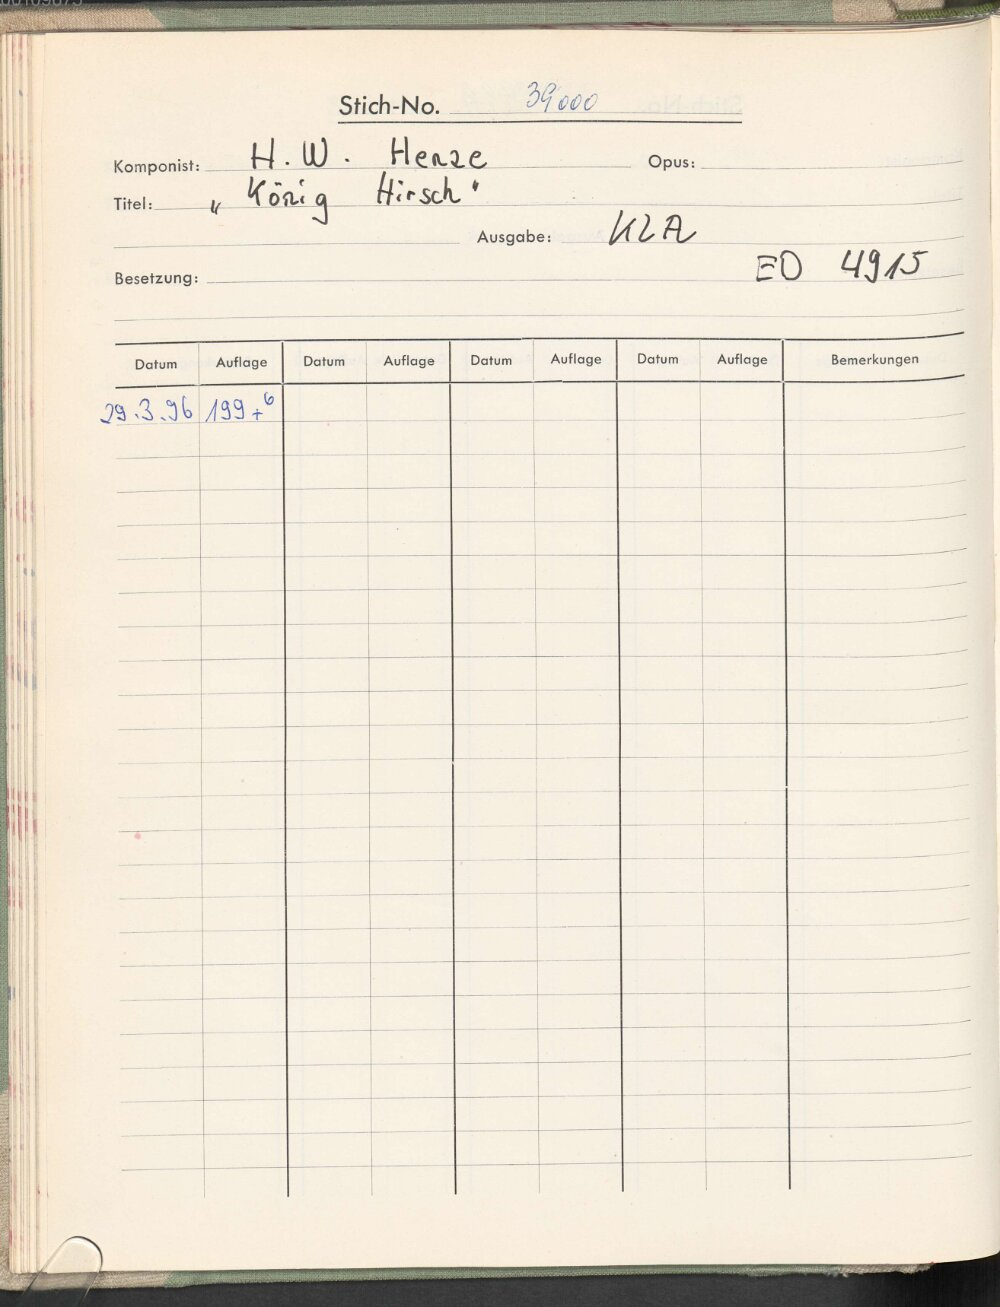 Stich-No. 39000
Komponist: H. W. Henze Opus:
Titel: „König Hirsch“
Ausgabe: KLA
ED 4915
Besetzung:
Datum Auflage Datum Auflage Datum Auflage Datum Auflage Bemerkungen
29.3.96 199+6